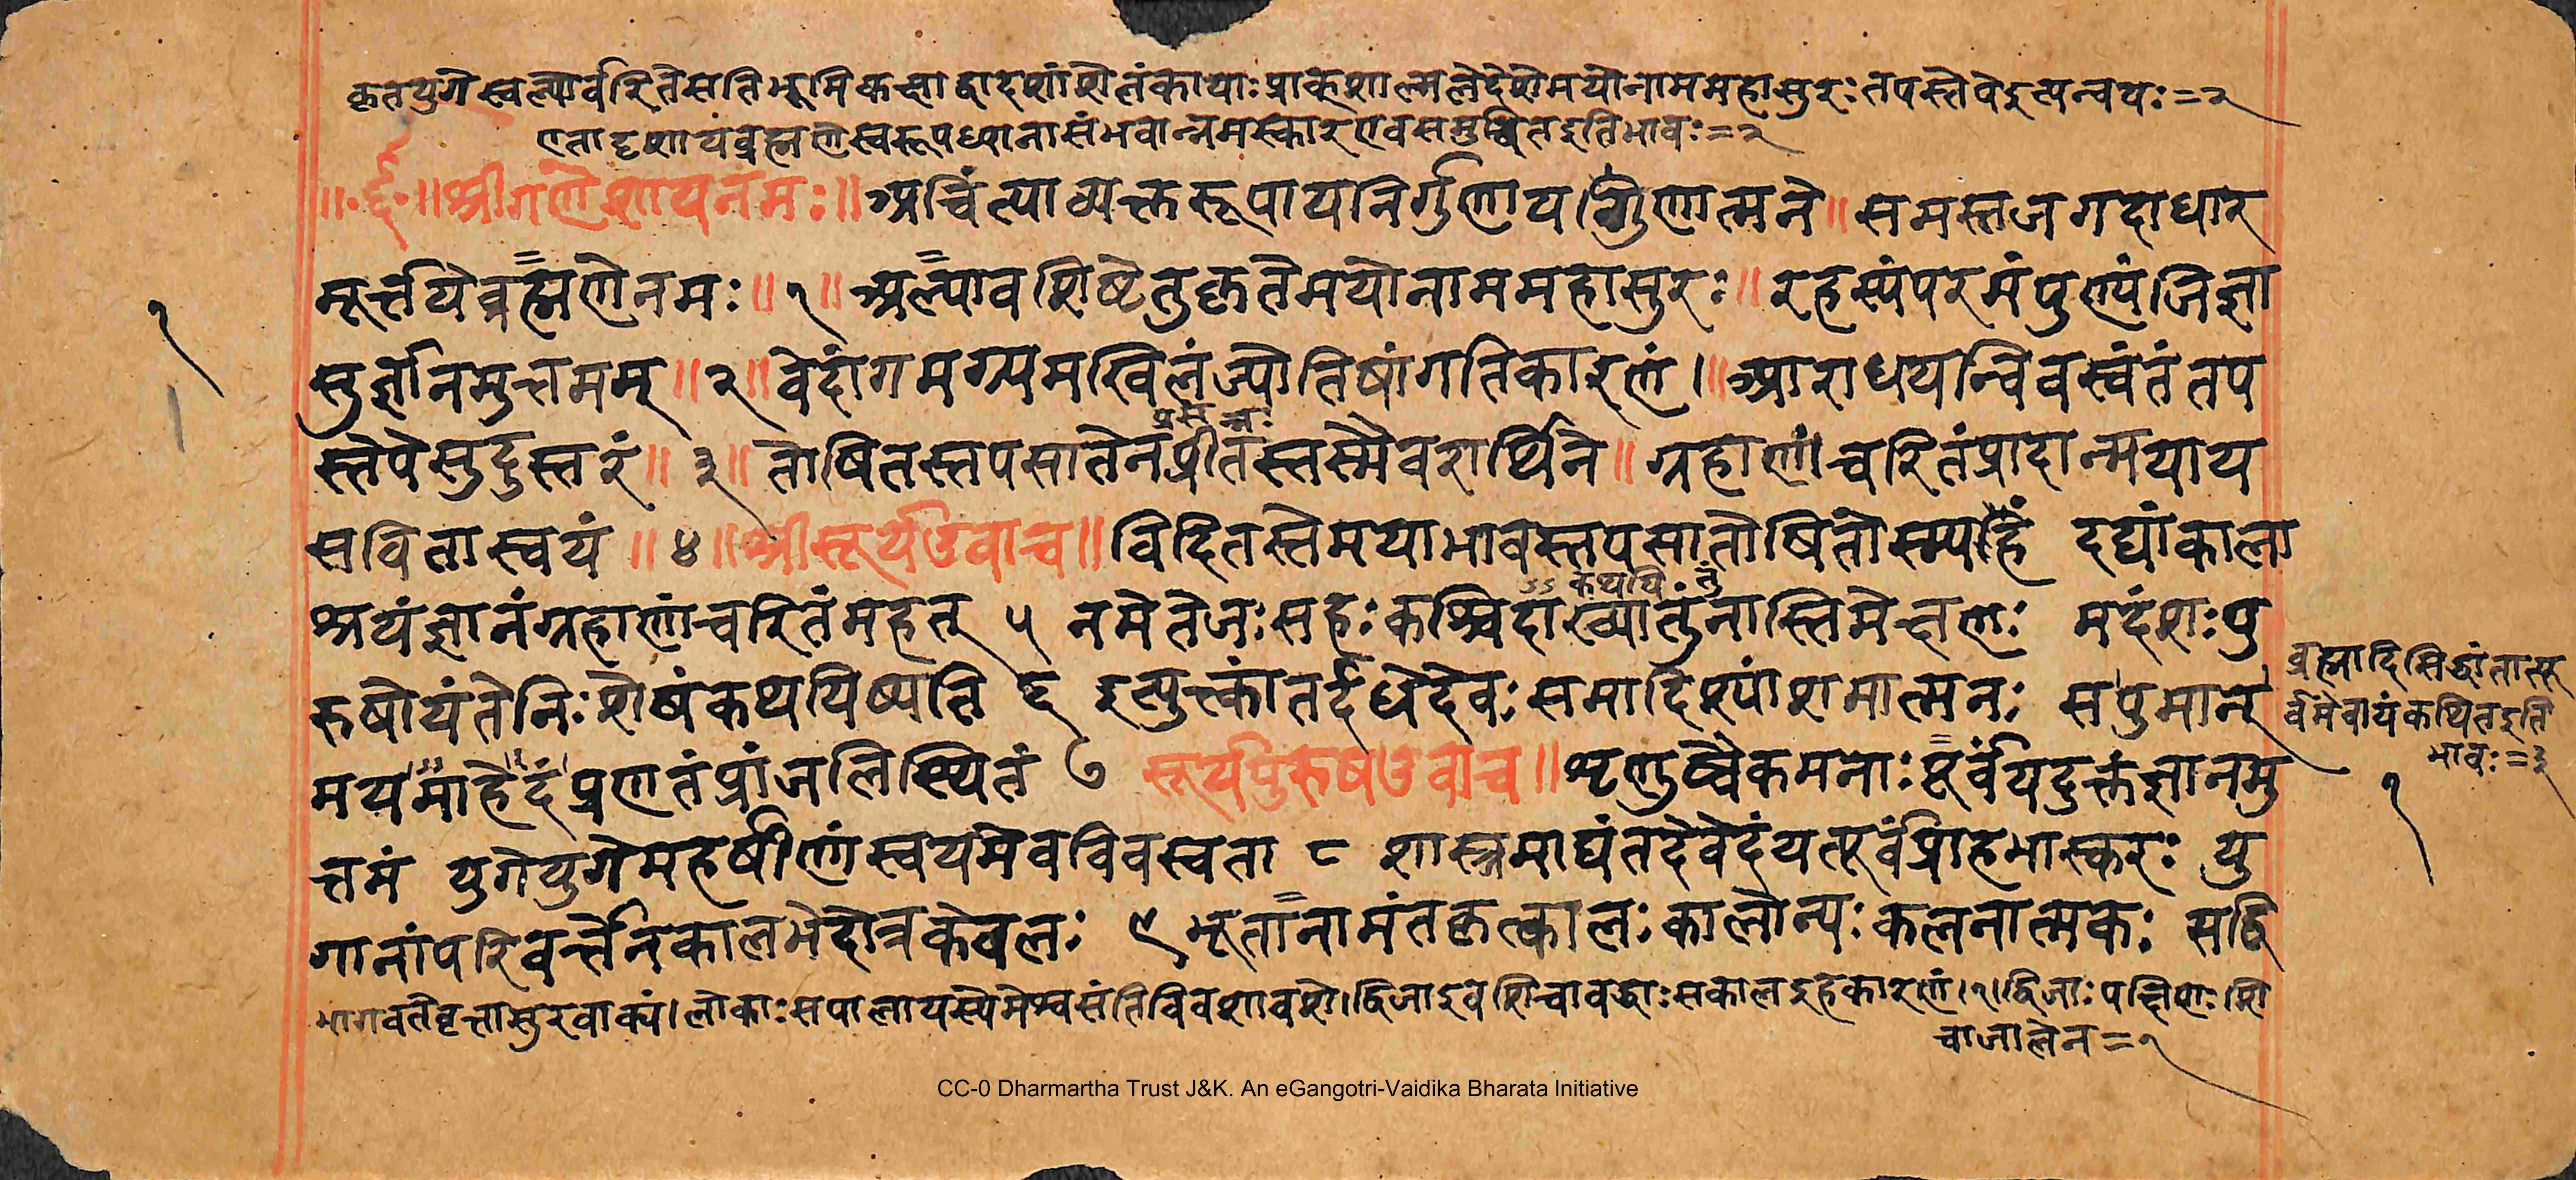 कृतयुगेस्वल्पोर्वरितेसतिभूमिकक्षाद्वादशांशेलंकायाःप्राक्शाल्मलेदेशेमयोनाममहासुरःतपस्तेपेइत्यन्वयः=२
एतादृशायंब्रह्मणेस्वरूपध्यानासंभवान्नमस्कारएवसमुचितइतिभावः=१
॥श्रीगणेशायनमः॥अचिंत्याव्यक्तरूपायनिर्गुणायगुणात्मने॥समस्तजगदाधार
मूर्त्तयेब्रह्मणेनमः॥१॥अल्पावशिष्टेतुकृतेमयोनाममहासुरः॥रहस्यंपरमंपुण्यंजिज्ञा
सुर्ज्ञानमुत्तमम्॥२॥वेदांगमग्र्यमखिलंज्योतिषांगतिकारणं।॥आराधयन्विवस्वंतंतप
प्रसन्नः
स्तेपेसुदुस्तरं॥३॥तोषितस्तपसातेनप्रीतस्तस्मैवरार्थिने॥ग्रहाणांचरितंप्रादान्मयाय
सवितास्वयं॥४॥श्रीसूर्यउवाच॥विदितस्तेमयाभावस्तपसातोषितोस्म्यहं दद्यांकाला
कथयितुं
श्रयंज्ञानंग्रहाणांचरितंमहत् ५ नमेतेजःसहःकश्चिदाख्यातुंनास्तिमेक्षणः मदंशःपु
रुषोयंतेनिःशेषंकथयिष्यति ६ इत्युक्त्कांतर्दधेदेवःसमादिश्यांशमात्मनः सपुमान्
ब्रह्मादिसिद्धांतात्पू
र्वमेवायंकथितइति
भावः=३
मयमाहेदंप्रणतंप्रांजलिस्थितं ७ सूर्यपुरुषउवाच॥शृणुष्वैकमनाःपूर्वंयदुक्तंज्ञानमु
त्तमं युगेयुगेमहर्षीणांस्वयमेवविवस्वता ८ शास्त्रमाद्यंतदेवेदंयत्पूर्वंप्राहभास्करः यु
गानांपरिवर्त्तेनकालभेदोत्रकेवलः ९ भूतानामंतकृत्कालःकालोन्यःकलनात्मकः सद्वि
भागवतेवृत्तासुरवाक्यं।लोकाःसपालायस्येमेश्वसंतिविवशावशे।द्विजाइवशिचाबद्धाःसकालइहकारणं।१।द्विजाःपक्षिणःशि
चाजालेन=१
१
१
CC-0 Dharmartha Trust J&K. An eGangotri-Vaidika Bharata Initiative